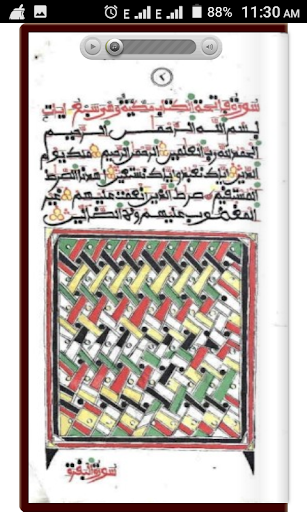 E E 88% 11:30 AM
٢
سورة فاتحة الكتاب مكية وهي سبع ايات
بسم الله الرحمن الرحيم
الحمد لله رب العلمين الرحمن الرحيم ملك يوم
الدين اياك نعبد واياك نستعين اهدنا الصرط
المستقيم صرط الذين انعمت عليهم غير
المغضوب عليهم ولا الضالين
سورة البقرة